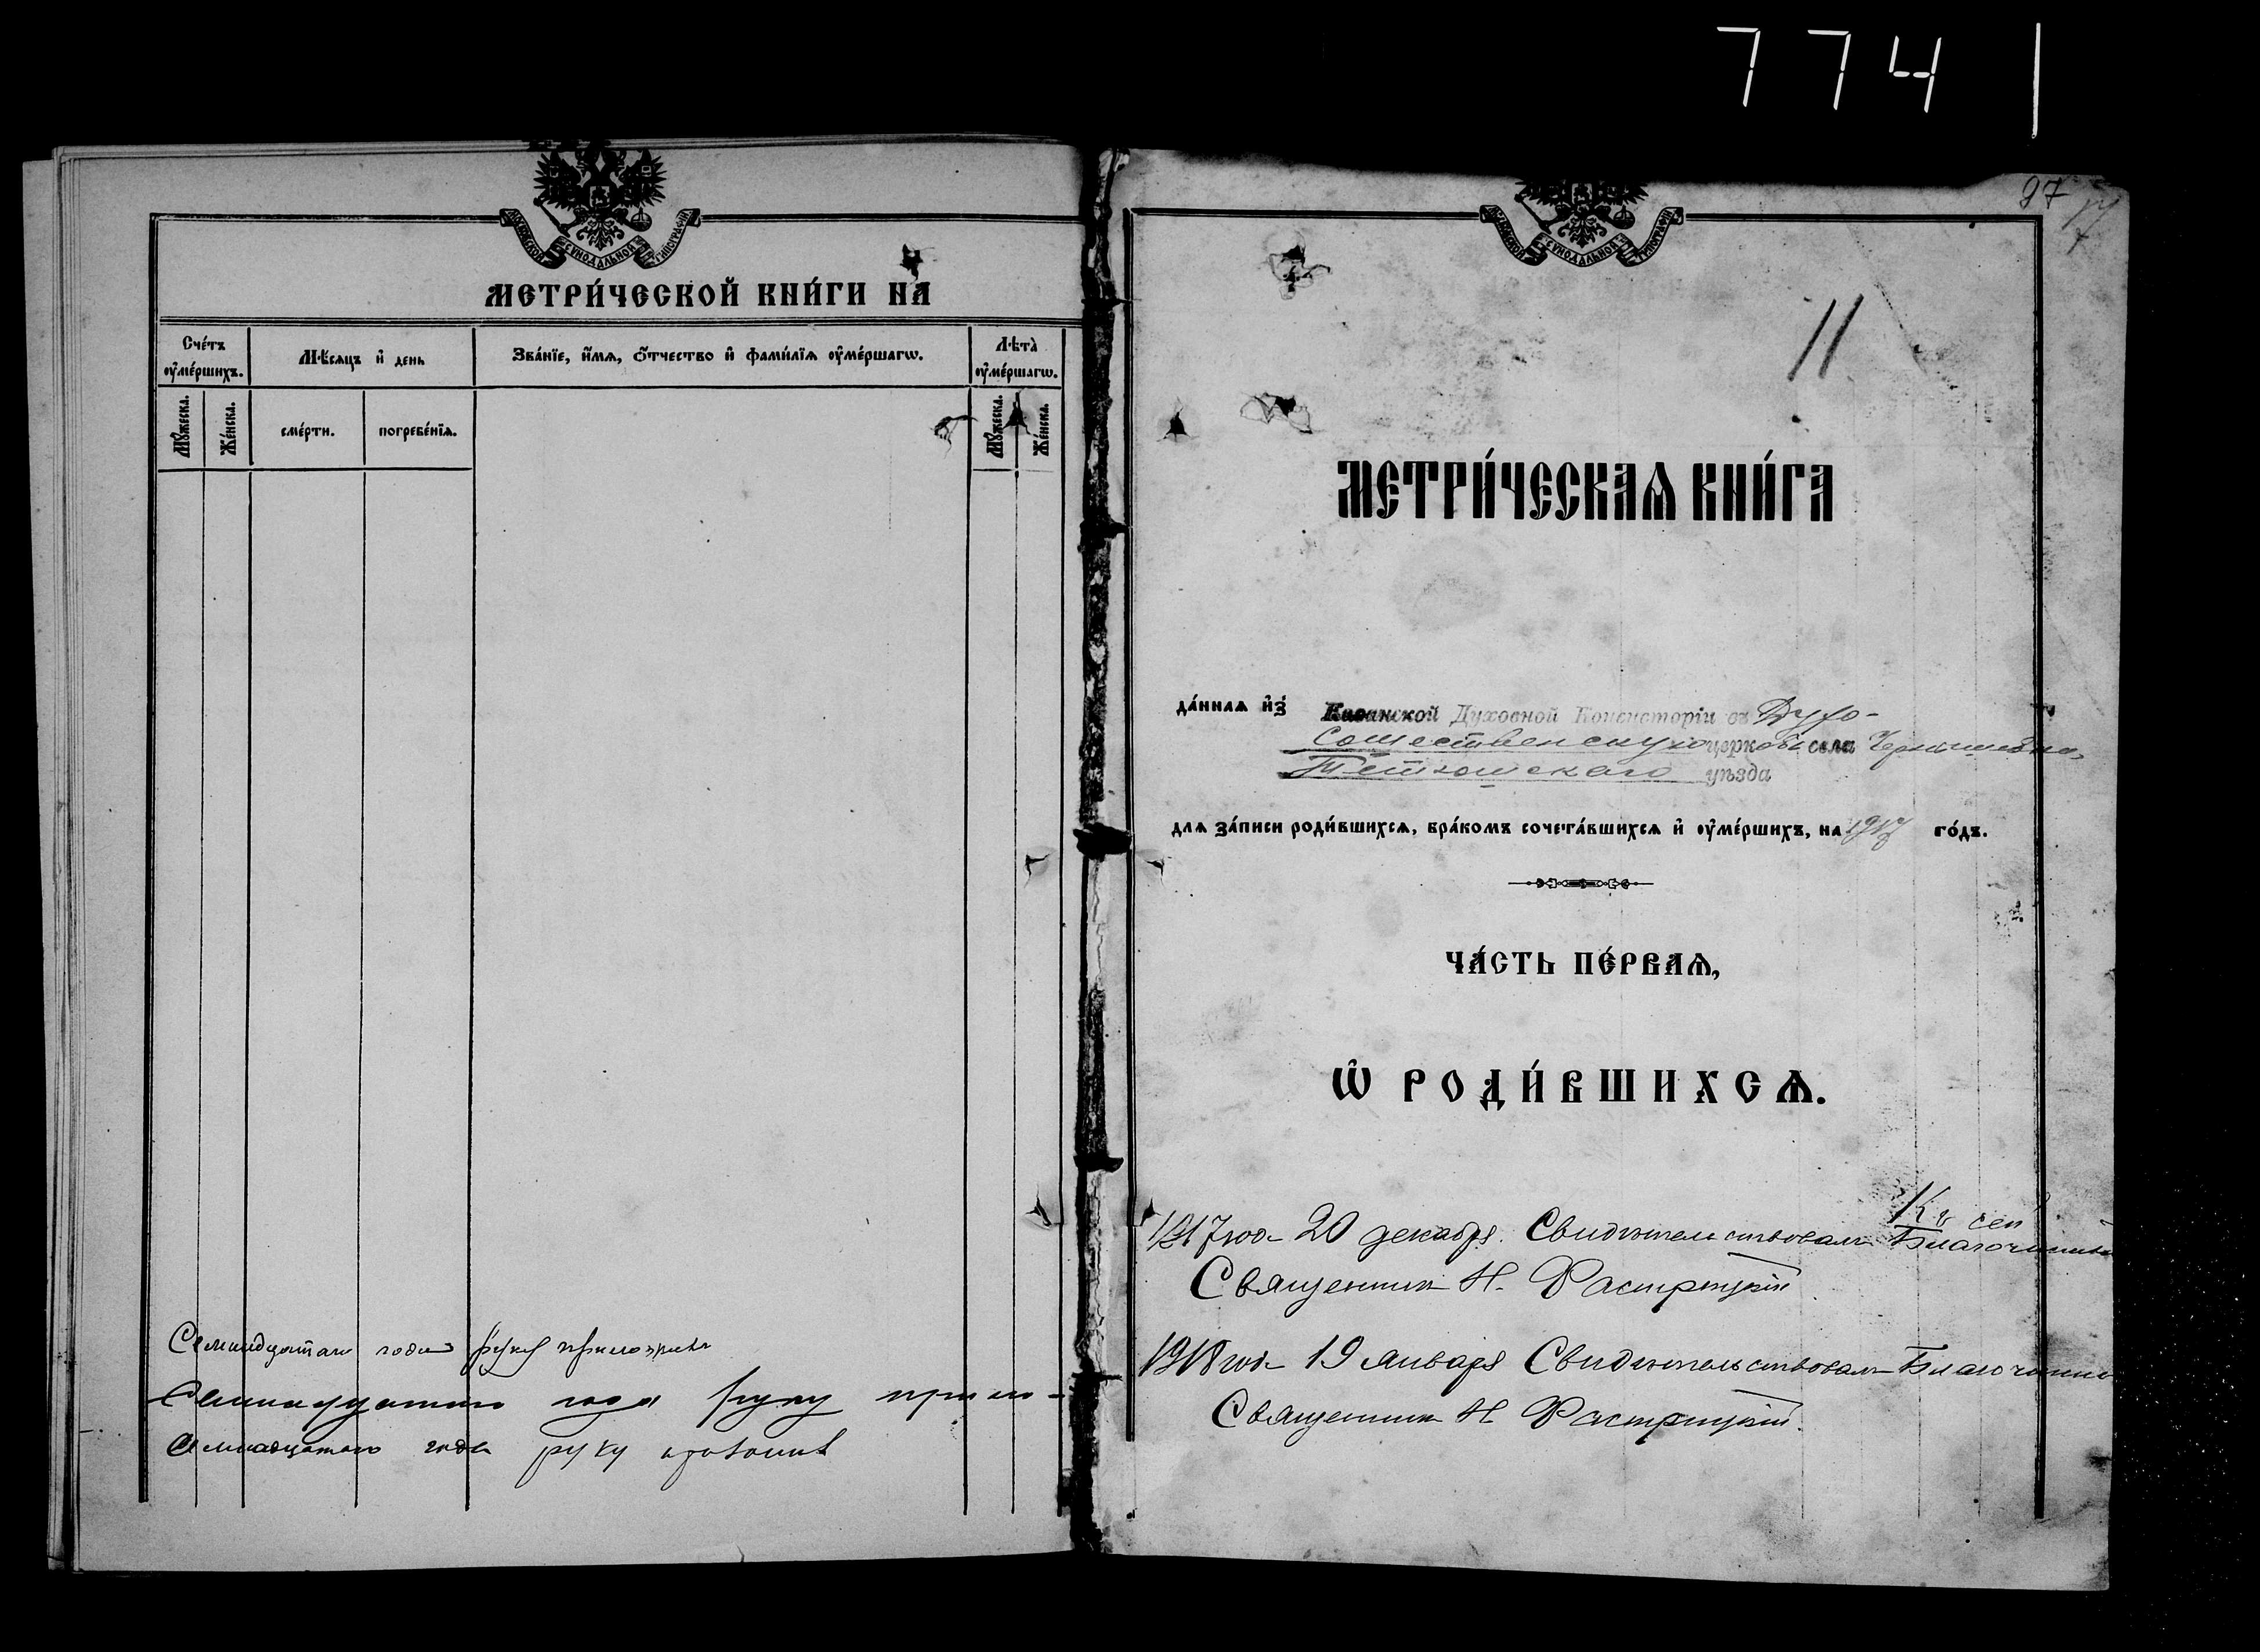 774
МЕТРИ́ЧЕСКОЙ КНИ́ГИ НА
Сче́тъ оу҆ме́ршихъ.
Мѣ́сяцъ и҆ день
Зва́нїе, и҆́мѧ, ѻ҆́тчество и҆ фами́лїѧ оу҆ме́ршагѡ.
Лѣта̀ оу҆ме́ршагѡ.
Мꙋ́жеска.
Же́нска.
сме́рти.
погребе́нїѧ.
Мꙋ́жеска.
Же́нска.
Семнадцатаго года руку приложилъ
Семнадцатаго года руку прило-
Семнадцатаго года руку приложилъ
97
11
МОСКОВСКОЙ СѴНОДАЛЬНОЙ ТИПОГРАФІИ
МЕТРИ́ЧЕСКАѦ КНИ́ГА
да́ннаѧ и҆з̾ Казанской Духовной Консисторіи въ Духо-
Сошественскую церковь села
Тетюшскаго уѣзда
длѧ за́писи роди́вшихсѧ, бра́комъ сочета́вшихсѧ и҆ оу҆ме́ршихъ, на 1917 го́дъ.
ЧА́СТЬ ПЕ́РВАѦ,
Ѡ҆ РОДИ́ВШИХСѦ.
1917 года 20 декабря. Свидѣтельствовалъ Благочинный
Священникъ Н.
1918 года 19 января Свидѣтельствовалъ Благочинный
Священникъ Н.